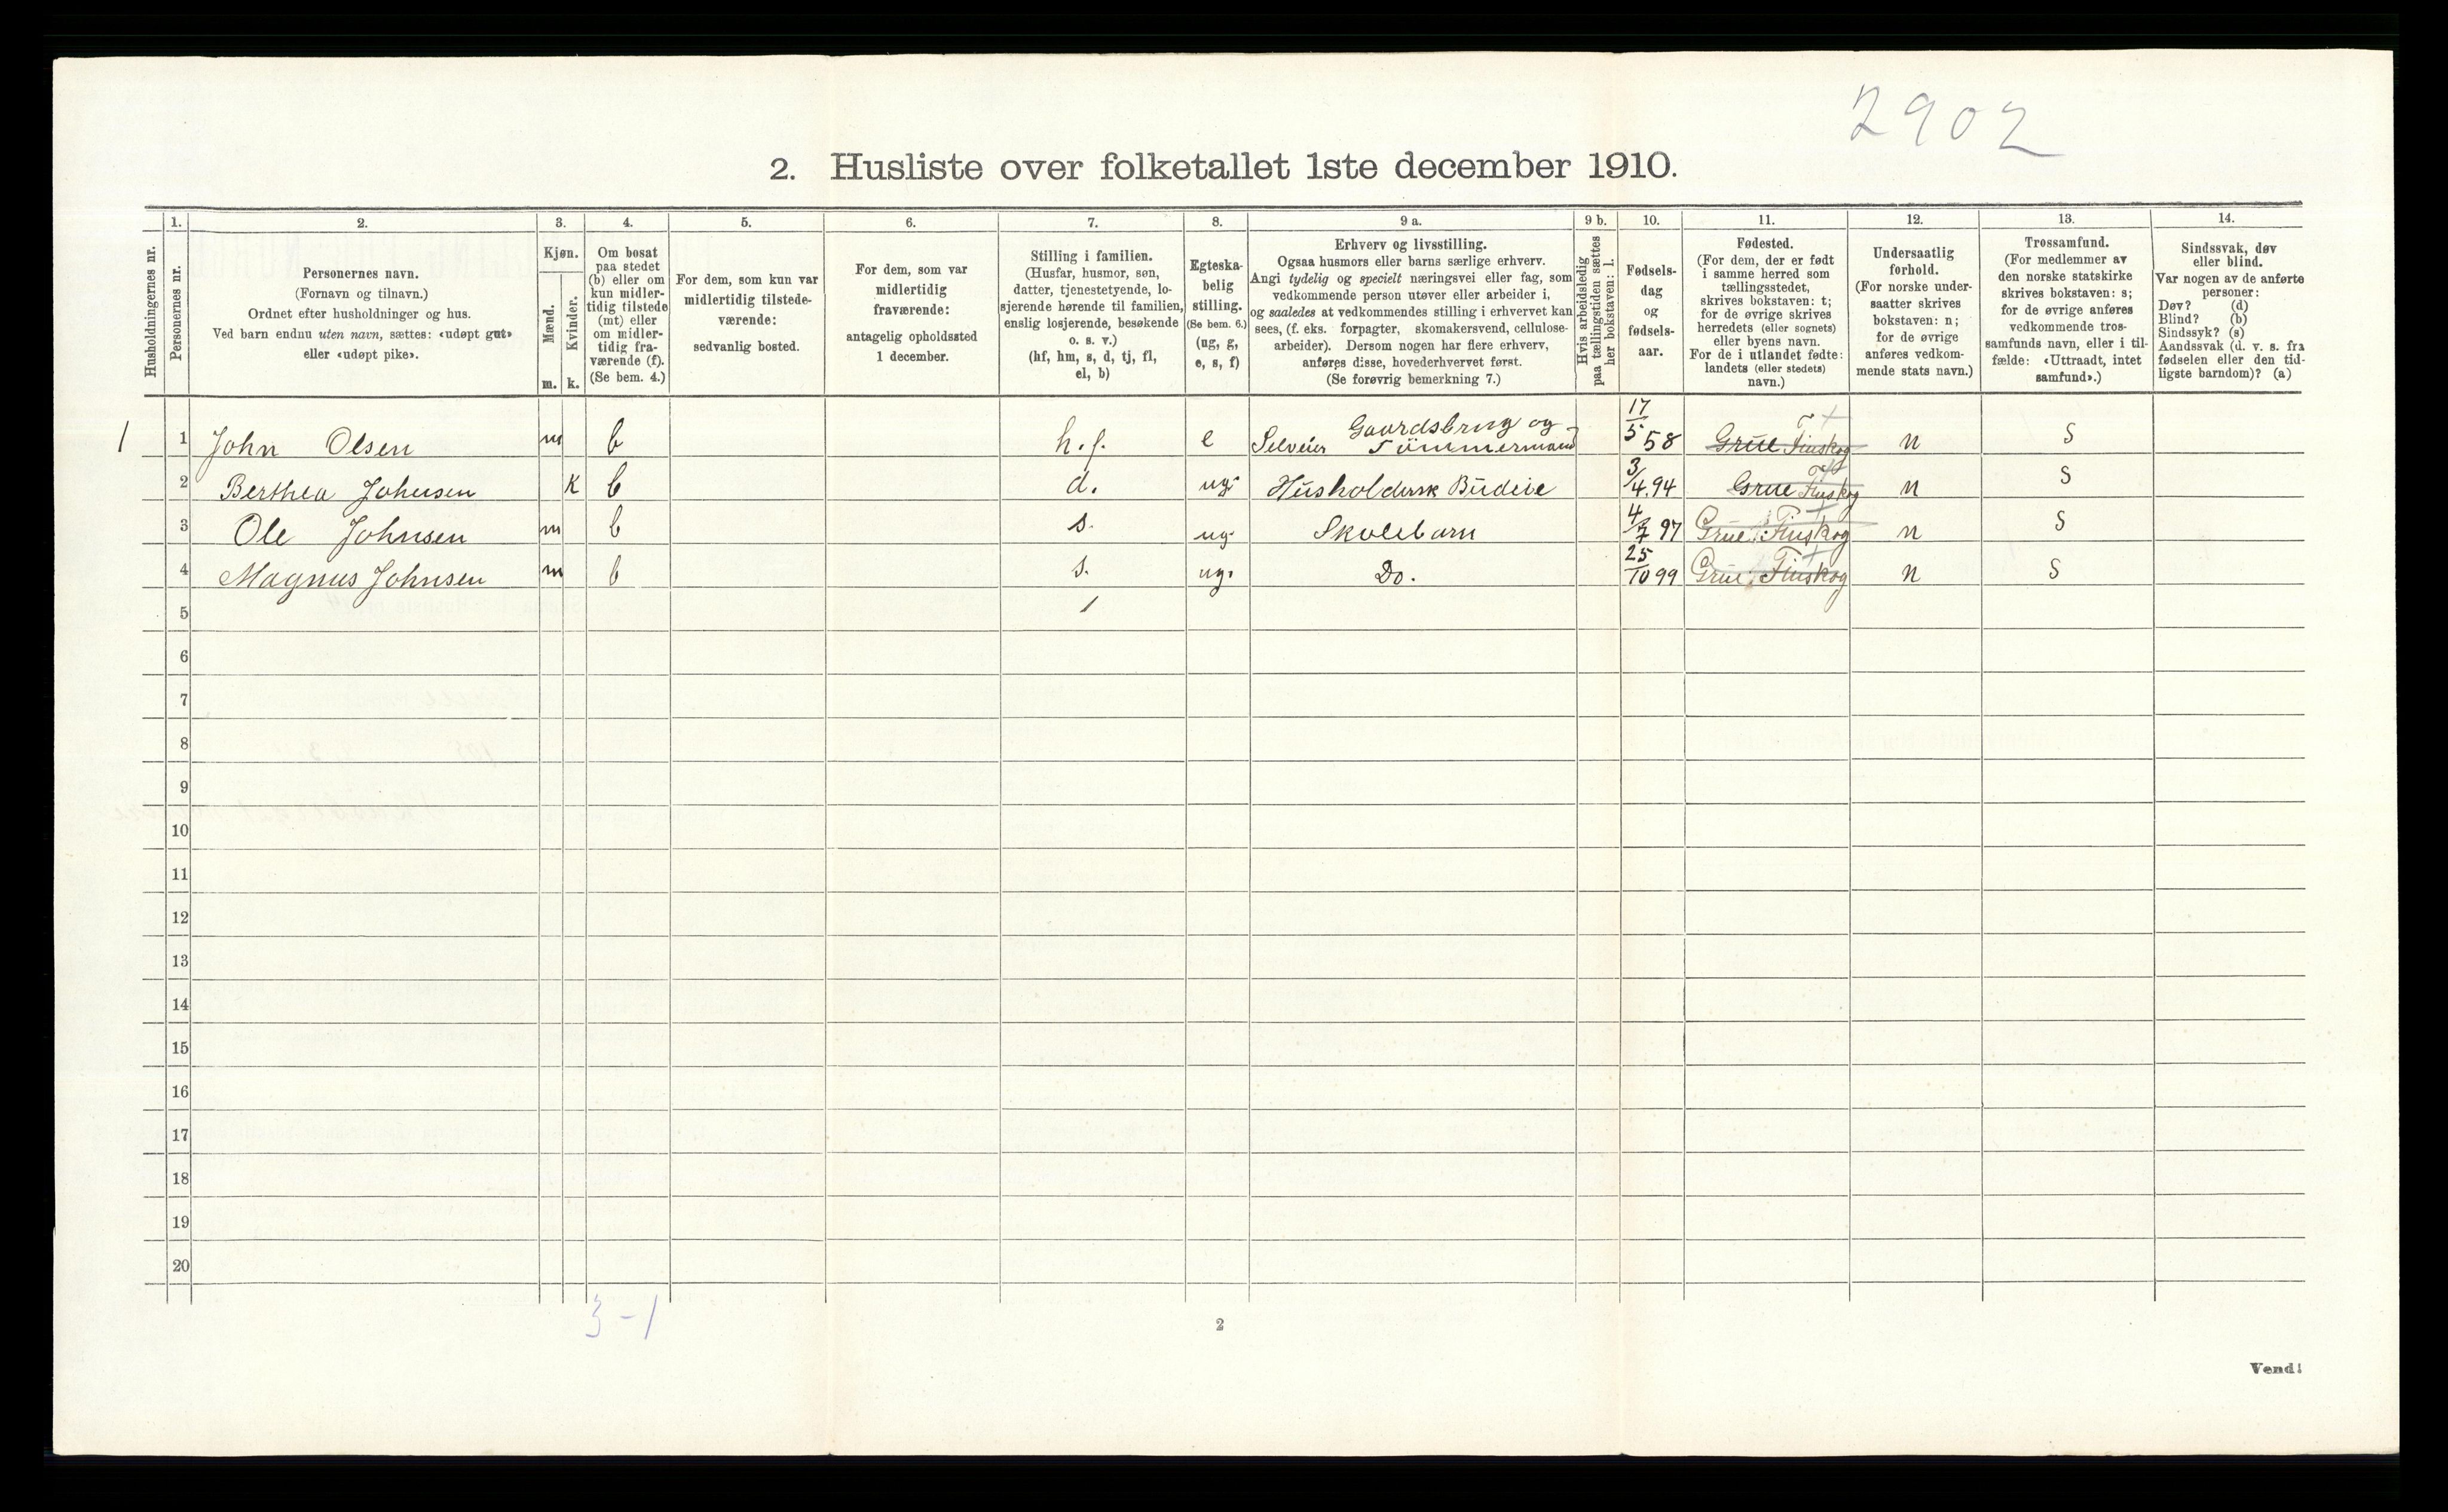 2902
2. Husliste over folketallet 1ste december 1910.
Husholdningernes nr.
1.
Personernes nr.
2.
Personernes navn.
(Fornavn og tilnavn.)
Ordnet efter husholdninger og hus.
Ved barn endnu uten navn, sættes: «udøpt gut»
eller «udøpt pike».
3.
Kjøn.
Mænd.
m.
Kvinder.
k.
4.
Om bosat
paa stedet
(b) eller om
kun midler-
tidig tilstede
(mt) eller
om midler-
tidig fra-
værende (f).
(Se bem. 4.)
5.
For dem, som kun var
midlertidig tilstede-
værende:
sedvanlig bosted.
6.
For dem, som var
midlertidig
fraværende:
antagelig opholdssted
1 december.
7.
Stilling i familien.
(Husfar, husmor, søn,
datter, tjenestetyende, lo-
sjerende hørende til familien,
enslig losjerende, besøkende
o. s. v.)
(hf, hm, s, d, tj, fl,
el, b)
8.
Egteska-
belig
stilling.
(Se bem. 6.)
(ug, g,
e, s, f)
9 a.
Erhverv og livsstilling.
Ogsaa husmors eller barns særlige erhverv.
Angi tydelig og specielt næringsvei eller fag, som
vedkommende person utøver eller arbeider i,
og saaledes at vedkommendes stilling i erhvervet kan
sees, (f. eks. forpagter, skomakersvend, cellulose-
arbeider). Dersom nogen har flere erhverv,
anføres disse, hovederhvervet først.
(Se forøvrig bemerkning 7.)
9 b.
Hvis arbeidsledig
paa tællingstiden sættes
her bokstaven: l.
10.
Fødsels-
dag
og
fødsels-
aar.
11.
Fødested.
(For dem, der er født
i samme herred som
tællingsstedet,
skrives bokstaven: t;
for de øvrige skrives
herredets (eller sognets)
eller byens navn.
For de i utlandet fødte:
landets (eller stedets)
navn.)
12.
Undersaatlig
forhold.
(For norske under-
saatter skrives
bokstaven: n;
for de øvrige
anføres vedkom-
mende stats navn.)
13.
Trossamfund.
(For medlemmer av
den norske statskirke
skrives bokstaven: s;
for de øvrige anføres
vedkommende tros-
samfunds navn, eller i til-
fælde: «Uttraadt, intet
samfund».)
14.
Sindssvak, døv
eller blind.
Var nogen av de anførte
personer:
Døv? (d)
Blind? (b)
Sindssyk? (s)
Aandssvak (d. v. s. fra
fødselen eller den tid-
ligste barndom)? (a)
1 1 John Olsen m b h.f. e Selveier Gaardsbrug og Tömmermand 17/5 58 Grue Finskog n S
2 Berthea Johnsen K b d. ug. Husholderske Budeie 3/4.94 Grue Finskog n S
3 Ole Johnsen m b s. ug. Skolebarn 4/7 97 Grue Finskog n S
4 Magnus Johnsen m b s. ug. Do. 25/10 99 Grue Finskog n S
5 1
6
7
8
9
10
11
12
13
14
15
16
17
18
19
20
3-1
2
Vend!